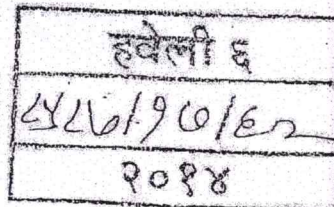 हवेली ६
८५८७/१७/६२
२०१४